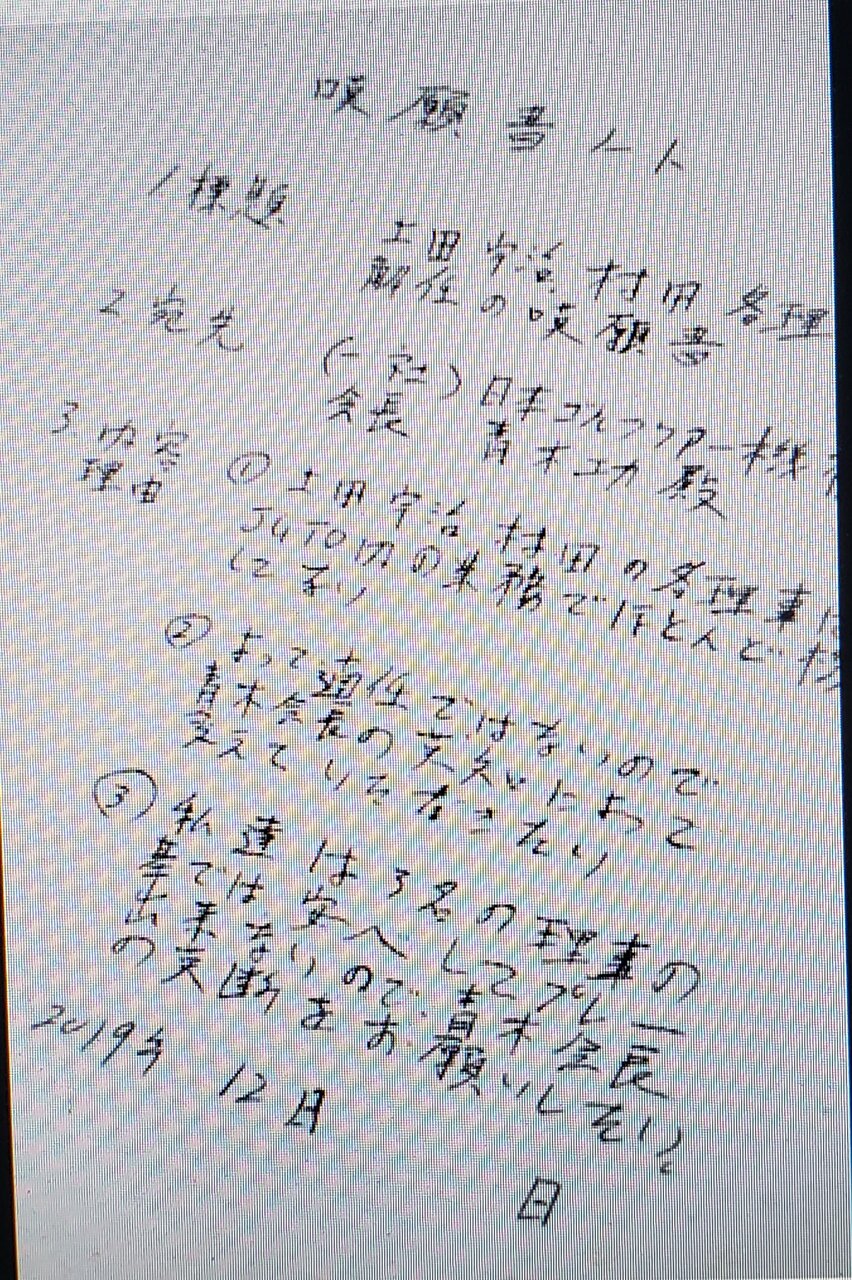 嘆願書
1 標題
上田 宇治 村田 各理
解任の嘆願書
2 宛先
(一社) 日本ゴルフツアー機
会長 青木功 殿
3 内容
理由
① 上田 宇治 村田の各理事は
JGTO内の業務でほとんど
② よって適任ではないので
青木会長の
変えていただきたい
③ 私達は3名の理事の
下では安心してプレー
出来ないので青木会長
の英断をお願いしたい。
2019年 12月
日